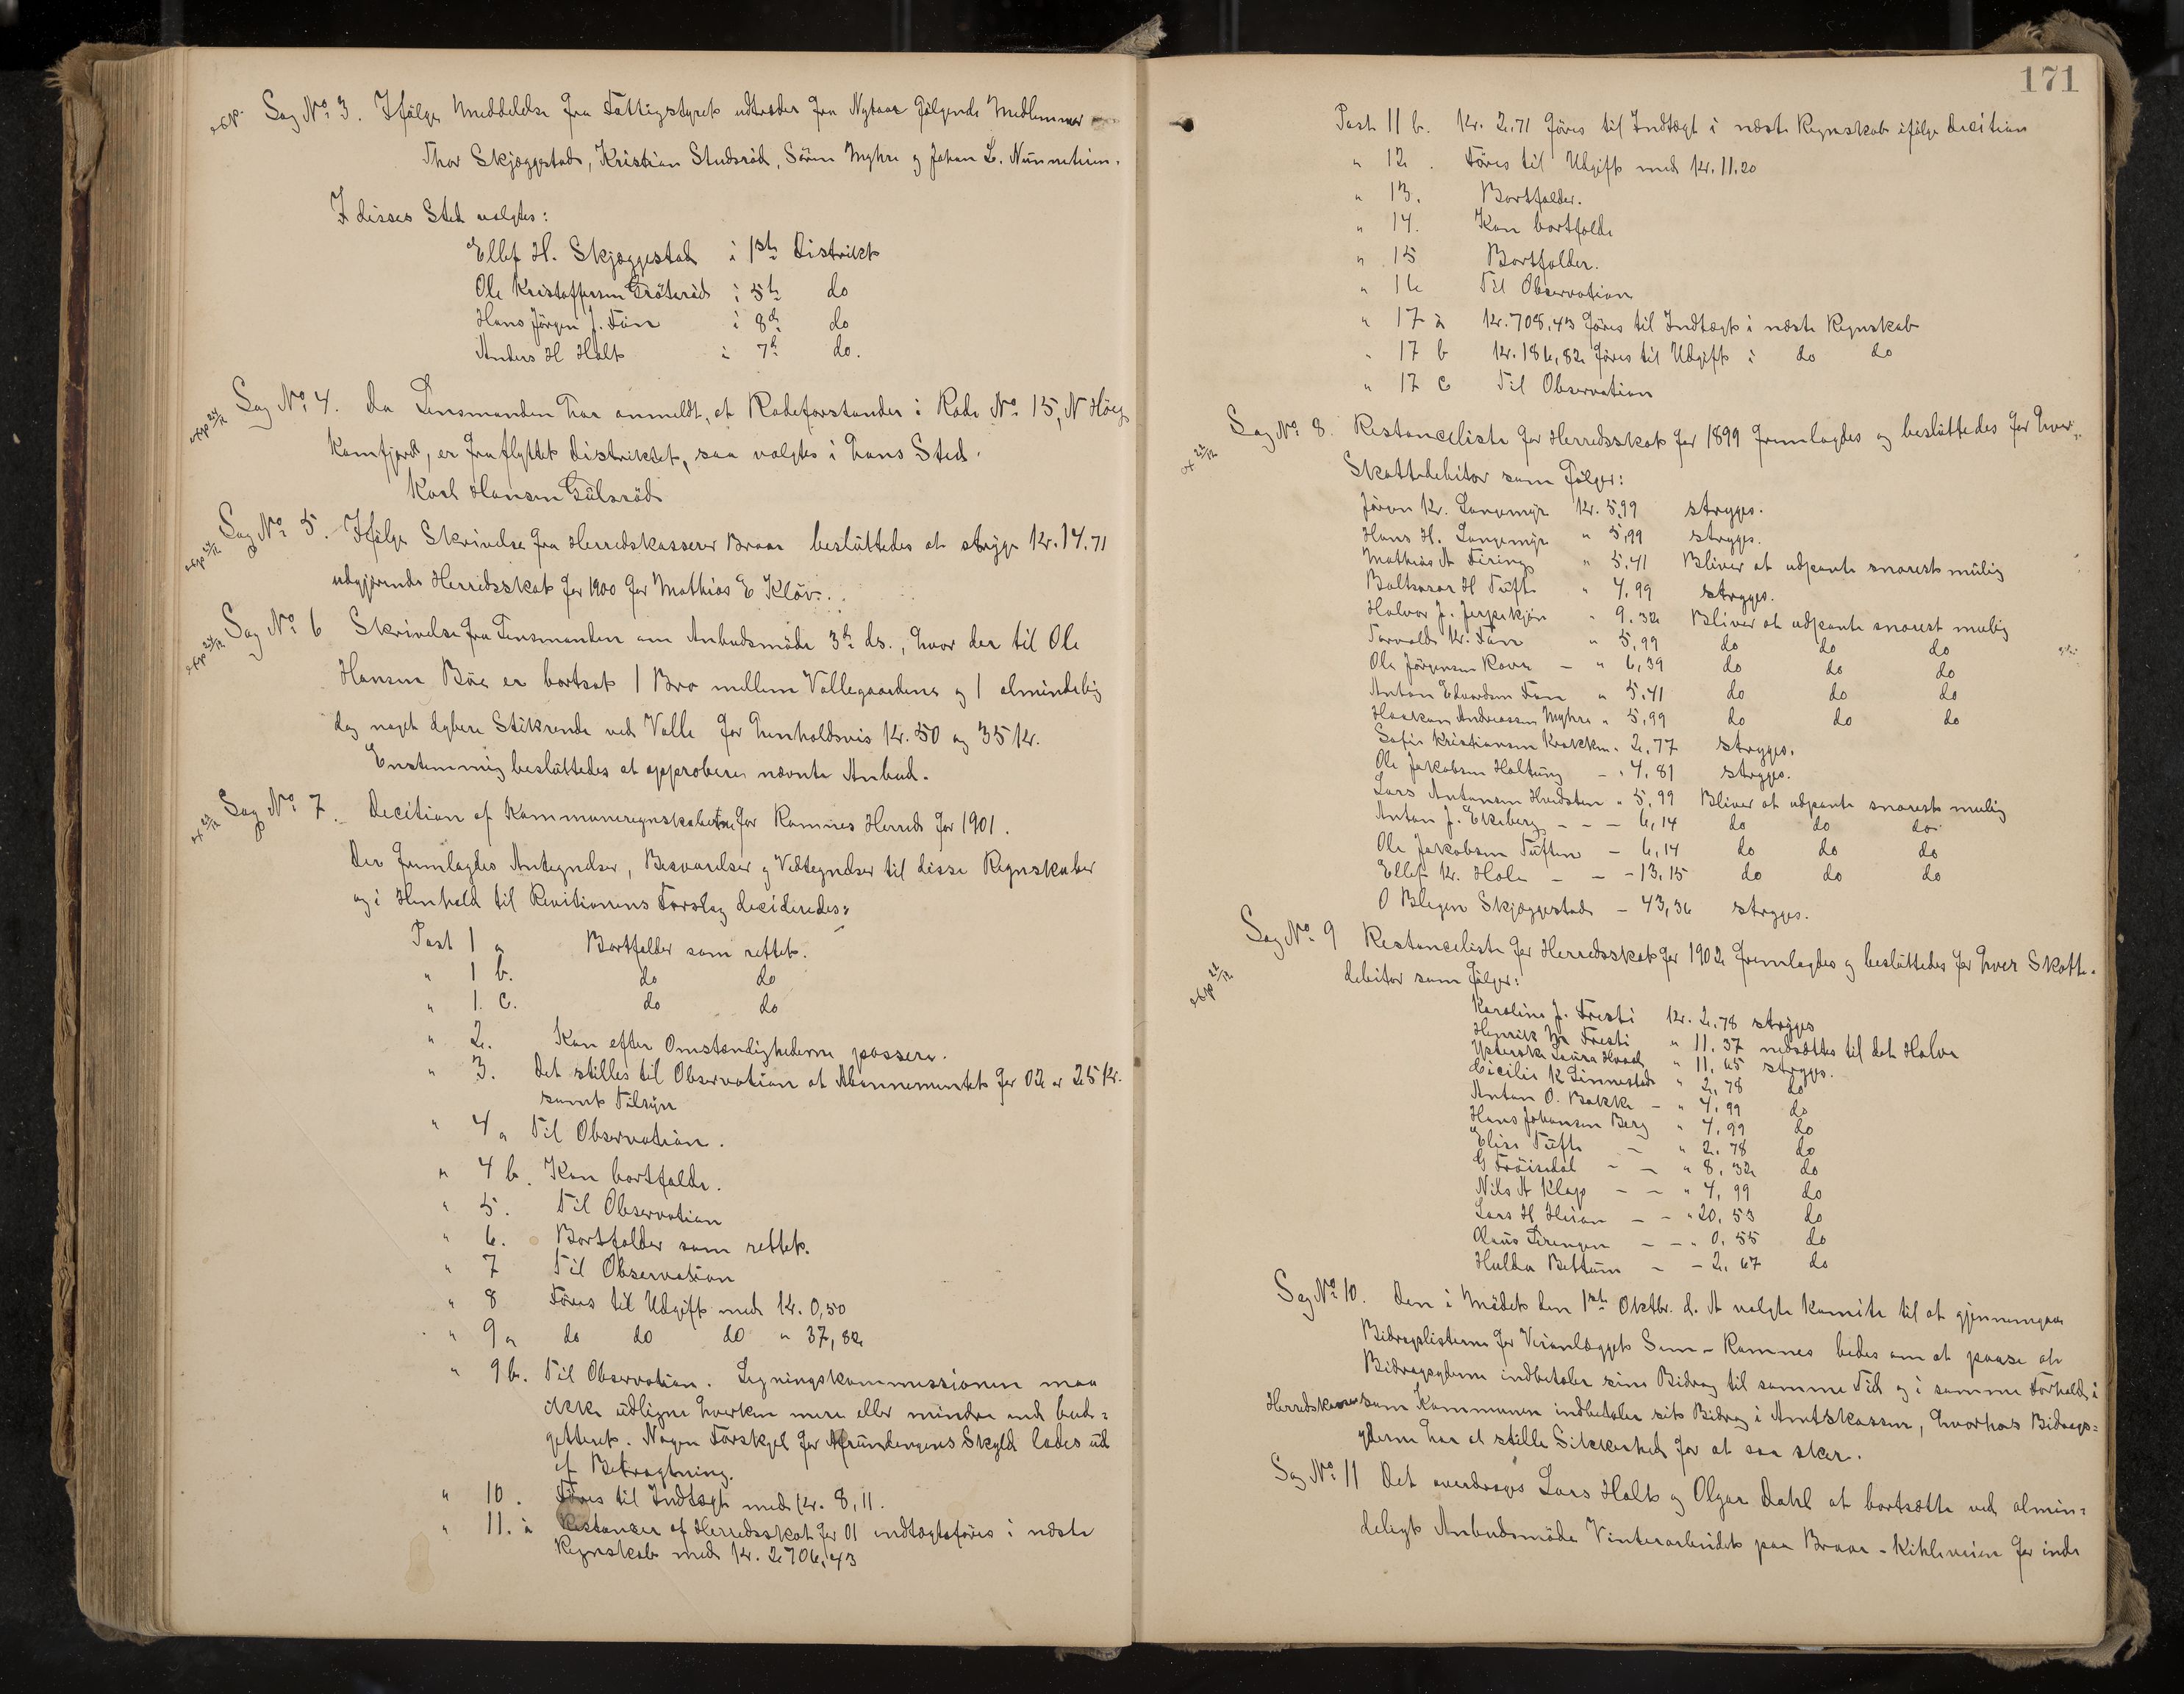 exp. Sag No 3. Ifølge Meddelelse fra Fattigstyret udtræder fra Nytaar følgende Medlemmer
Thor Skjæggestad, Kristian Studsröd, Sören Myhre og Johan L.
I disses Sted valgtes:
Ellef H. Skjæggestad i 1ste Distrikt
Ole Kristoffersen Gröteröd i 5te do
Hans Jörgen J. Fön i 8de do
Anders H Holt i 7de do.
exp 24/12 Sag No 4. Da Lensmanden har anmeldt, at Rodeforstander i Rode No 15, N Höeg
Kamfjord, er fraflyttet Distriktet, saa valgtes i hans Sted.
Karl Hansen Gülsröd
exp 24/12 Sag No 5. Ifølge Skrivelse fra Herredskasserer Braar beslüttedes at stryge Kr. 14.71
udgjørende Herredsskat for 1900 for Mathias E Klöv.
exp 24/12 Sag No 6 Skrivelse fra Lensmanden om Anbudsmöde 3de ds., hvor der til Ole
Hansen Böe er bortsat 1 Bro mellem Vallegaardene og 1 almindelig
dog noget dybere Stikrende ved Valle for henholdsvis Kr. 50 og 35 Kr.
Enstemmig beslüttedes at approbere nævnte Anbud.
ex 24/12 Sag No 7. Decition af Kommuneregnskaberne for Ramnes Herred for 1901.
Der fremlagdes Antegnelser, Besvarelser og Vedtegnelser til disse Regnskaber
og i Henhold til Revitionens Forslag decideredes:
Post 1 a Bortfalder som rettet.
" 1 b. do do
" 1. c. do do
" 2. Kan efter Omstændighederne passere.
" 3. Det stilles til Observation at Abonnementet for 02 er 25 Kr.
samt Tilsyn
" 4 a Til Observation.
" 4 b. Kan bortfalde.
" 5. Til Observation
" 6. Bortfalder som rettet.
" 7 Til Observation
" 8 Föres til Udgift med Kr. 0,50
" 9 a do do do " 37,82
" 9 b. Til Observation. Ligningskommissionen maa
ikke üdligne hverken mere eller mindre end bud-
getteret. Nogen Forskjel for Afründingens Skyld lades üd
af Betragtning.
" 10. Föres til Indtægt med Kr. 8,11.
" 11. a Restancer af Herredsskat for 01 indtægtsföres i næste
Regnskab med Kr. 2706,43
171
Post 11 b. Kr. 2.71 föres til Indtægt i næste Regnskab ifølge Decition
" 12. Föres til Udgift med Kr. 11.20
" 13. Bortfalder.
" 14. Kan bortfalde
" 15 Bortfalder.
" 16 Til Observation
" 17 a Kr. 708,43 föres til Indtægt i næste Regnskab
" 17 b Kr. 186,82 föres til Udgift i do do
" 17 c Til Observation
ex 22/12 Sag No 8. Restanceliste for Herredsskat for 1899 fremlagdes og beslüttedes for hver
Skattedebitor som følger:
Jörgen Kr. Langemyr Kr. 5,99 stryges.
Hans H. Langemyr " 5,99 stryges.
Mathias A Firing " 5.41 Bliver at udpante snarest mülig
Baltzasar H Tüfte " 4,99 stryges.
Halvor J. Jerpekjön " 9.32 Bliver at udpante snarest mulig
Torvald Kr. Fön " 5,99 do do do
Ole Jörgensen Rove — " 6,39 do do do
Anton Edvardsen Fön " 5.41 do do do
Haakon Andreassen Myhre " 5,99 do do do
Sofie Kristiansen " 2,77 stryges.
Ole Jakobsen Holtüng — " 4,81 stryges.
Lars Antonsen Hvidsten " 5,99 Bliver at udpante snarest mulig
Anton J. Ekeberg — — — 6,14 do do do
Ole Jakobsen Tüften — 6,14 do do do
Ellef Kr. Hole — — — 13,15 do do do
O Blegen Skjæggestad — 43,36 stryges.
exp 22/12 Sag No 9 Restanceliste for Herredsskat for 1902 fremlagdes og beslüttedes for hver Skatte-
debitor som følger:
Karoline J. Fresti Kr. 2,78 stryges
Henrik Fresti " 11.37 nedsættes til det Halve
Laura " 11,65 stryges.
Cicilie K Linnestad " 2,78 do
Anton O. Bakke — " 4,99 do
Hans Johansen Berg " 4,99 do
Elise Tüfte — " 2.78 do
G Fröisdal — — " 8,32 do
Nils A Klopp — — " 4,99 do
Lars H Heian — — " 20,53 do
Olaüs — — " 0,55 do
Hulda Bettüm — — 2,67 do
Sag No 10. Den i Mödet den 1ste Oktbr. d. A valgte Komite til at gjennemgaa
Bidragslisterne for Veianlægget Sem - Ramnes bedes om at paase at
Bidragsyderne indbetaler sine Bidrag til samme Tid og i samme Forhold i
Herredskassen som Kommunen indbetaler sit Bidrag i Amtskassen, hvorhos Bidrags-
yderne har at stille Sikkerhed for at saa sker.
Sag No 11 Det overdrages Lars Holt og Olger Dahl at bortsætte ved almin-
deligt Anbudsmöde Vinterarbeidet paa Braar - Kihleveien for inde